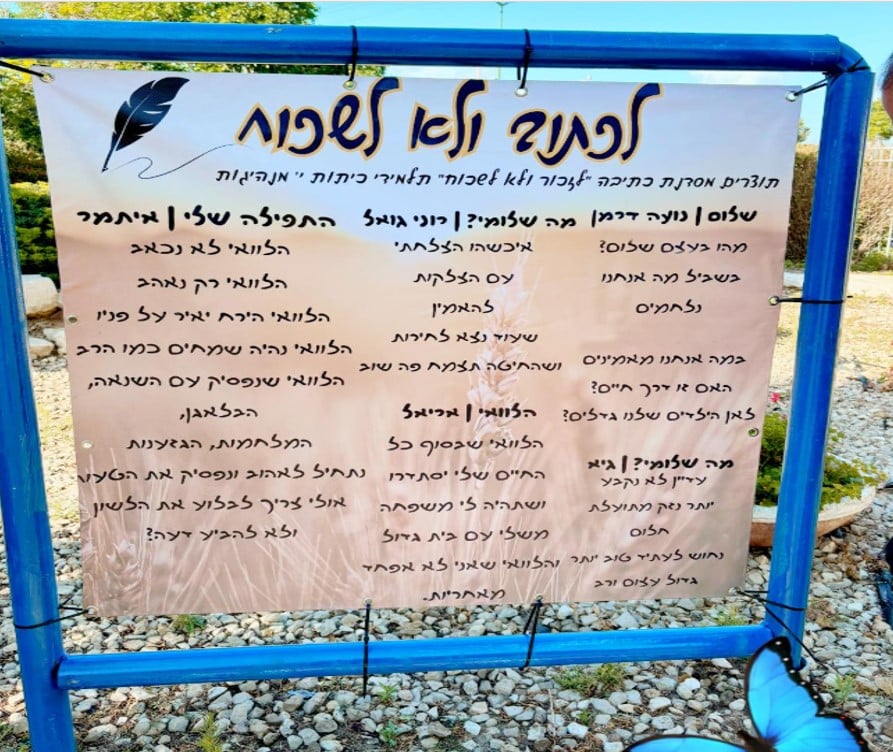 לכתוב ולא לשכוח
תוצרים מסדנת כתיבה "לזכור ולא לשכוח" תלמידי כיתות י' מנהיגות
שלום | נועה דרמן
מהו בעצם שלום?
בשביל מה אנחנו
נלחמים
במה אנחנו מאמינים
האם זו דרך חיים?
לאן הילדים שלנו גדלים?
מה שלומי? | גיא
עדיין לא נקבע
יותר נזק מתועלת
חלום
נחוש לעתיד טוב יותר
גדול עצום ורב
מה שלומי? | רוני גואל
איכשהו הצלחתי
עם הצלקות
להאמין
שעוד נצא לחירות
ושהחיטה תצמח פה שוב
הלוואי | אריאל
הלוואי שבסוף כל
החיים שלי יסתדרו
ושתהיה לי משפחה
משלי עם בית גדול
והלוואי שאני לא אפחד
מאחריות.
התפילה שלי | איתמר
הלוואי לא נכאב
הלוואי רק נאהב
הלוואי הירח יאיר על פניו
הלוואי נהיה שמחים כמו הרב
הלוואי שנפסיק עם השנאה,
הבלאגן,
המלחמות, הגזענות
נתחיל לאהוב ונפסיק את הטעות
אולי צריך לבלוע את הלשון
ולא להביע דעה?